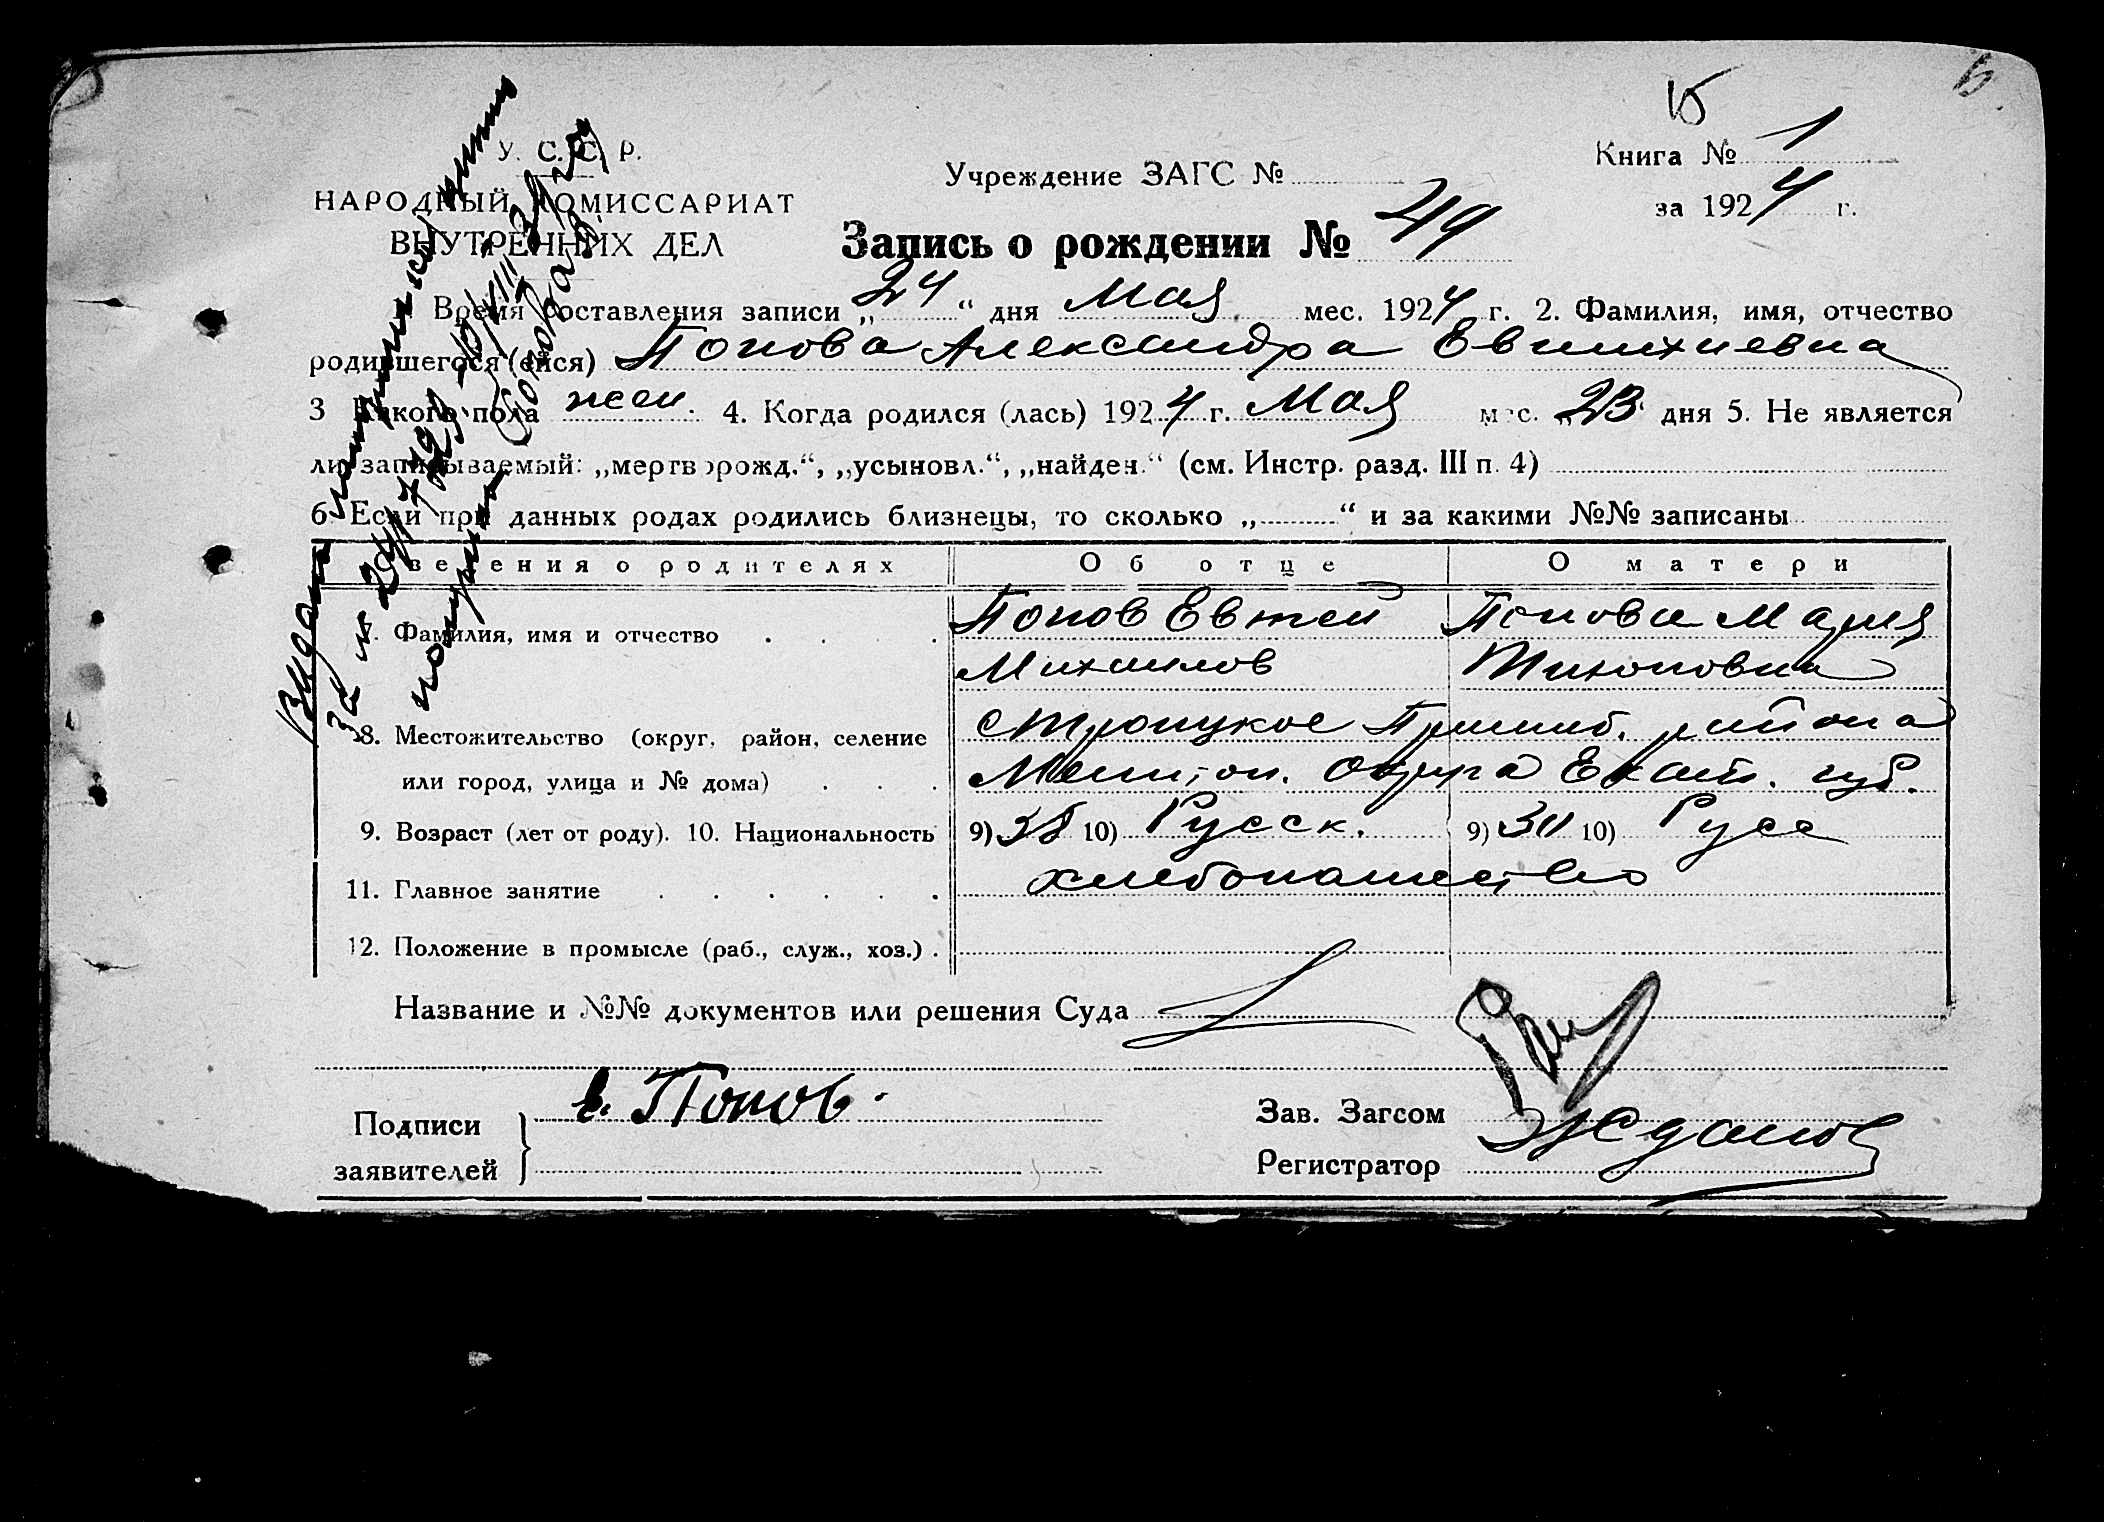 У. С. С. Р.
НАРОДНЫЙ КОМИССАРИАТ
ВНУТРЕННИХ ДЕЛ
Учреждение ЗАГС №
Книга № 1
за 1924 г.
Запись о рождении № 49
1. Время составления записи „24“ дня Мая мес. 1924 г. 2. Фамилия, имя, отчество
родившегося (ейся) Попова Александра
3 Какого пола жен. 4. Когда родился (лась) 1924 г. Мая мес. „23 дня 5. Не является
ли записываемый: „мертворожд.“, „усыновл.“, „найден.“ (см. Инстр. разд. III п. 4)
6 Если при данных родах родились близнецы, то сколько „ “ и за какими №№ записаны
Сведения о родителях Об отце О матери
7. Фамилия, имя и отчество . . . Попов Евтей Попова Мария
Михаилов Тихоновна
8. Местожительство (округ, район, селение Троицкое района
или город, улица и № дома) . . . округа Екат. губ.
9. Возраст (лет от роду). 10. Национальность 9) 38 10) Русск. 9) 10) Русс
11. Главное занятие . . . . . . хлебопашество
12. Положение в промысле (раб., служ., хоз.) .
Название и №№ документов или решения Суда
Подписи
заявителей
Е. Попов.
Зав. Загсом
Регистратор Жданов